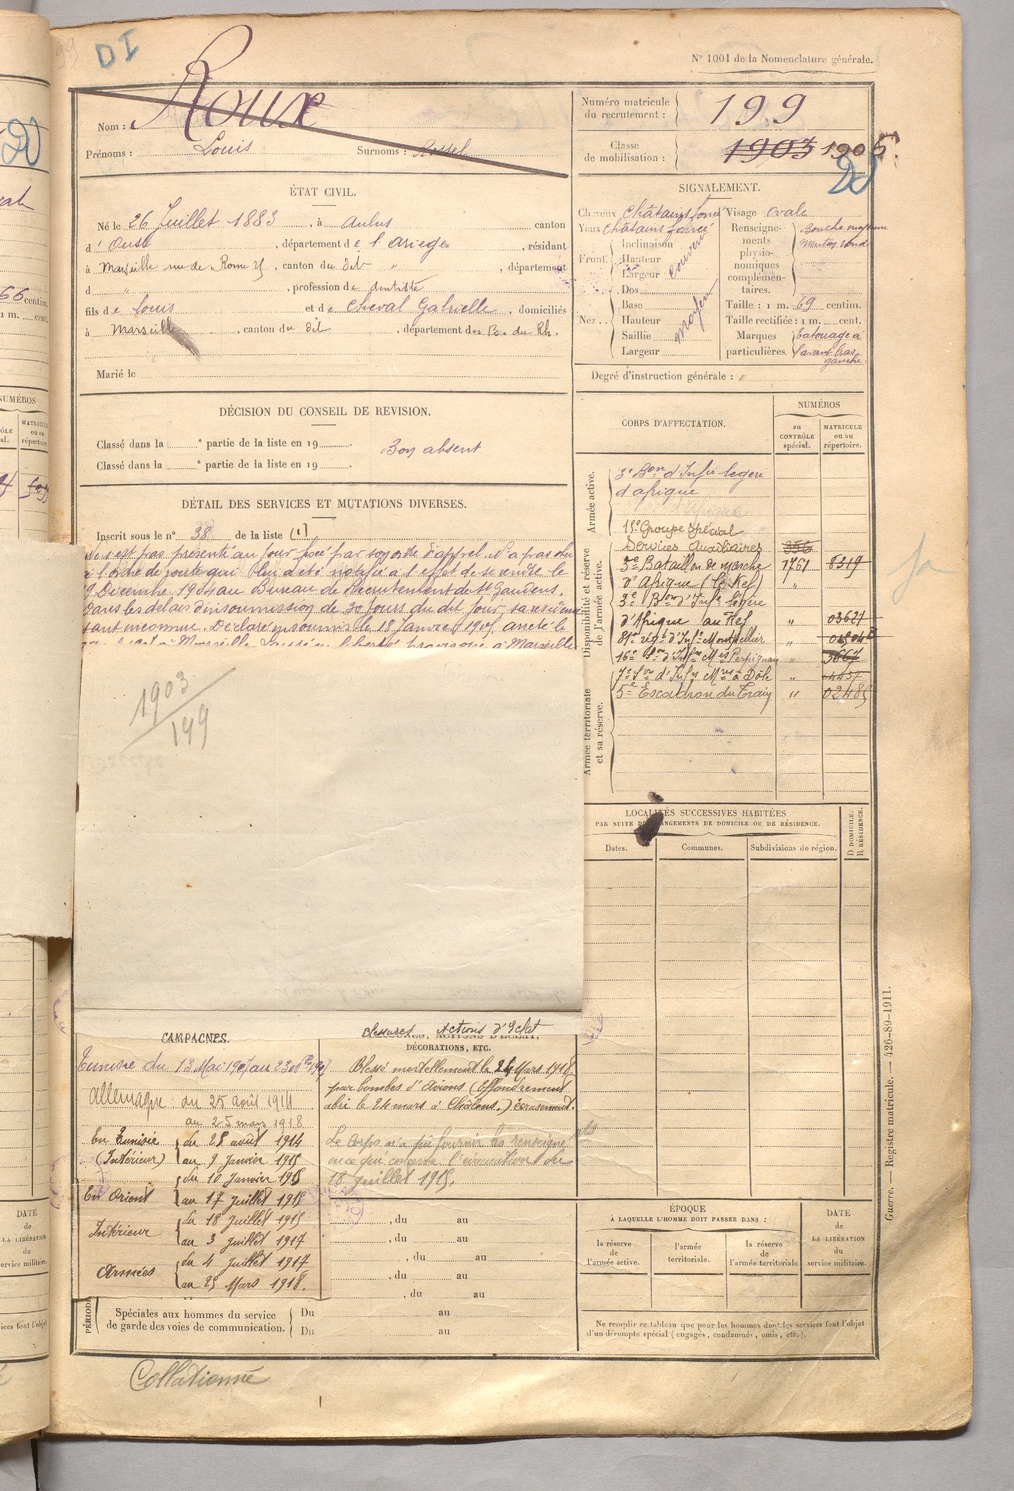 DI
N° 1001 de la Nomenclature générale.
Nom : Roux
Prénoms : Louis Surnoms :
Numéro matricule du recrutement : 199
Classe de mobilisation : 1903 1906
ÉTAT CIVIL.
Né le 26 Juillet 1883, à Aulus canton
d'Oust, département de l'Ariège, résidant
à Marseille rue de Rome 25, canton du dit, département
d " , profession de dentiste
fils de Louis et de Cheval Gabrielle, domiciliés
à Marseille, canton du dit, département des B. du Rh.
Marié le
SIGNALEMENT.
Cheveux châtains foncé Visage ovale
Yeux châtains foncé
Front Inclinaison Hauteur Largeur couvert
Nez Dos Base Hauteur Saillie Largeur moyen
Renseignements physionomiques complémentaires. Bouche moyenne menton rond
Taille : 1 m. 69 centim.
Taille rectifiée : 1 m. cent.
Marques particulières. tatouage à l'avant bras gauche.
Degré d'instruction générale : "
DÉCISION DU CONSEIL DE REVISION.
Classé dans la e partie de la liste en 19 .
Classé dans la e partie de la liste en 19 .
Bon absent
DÉTAIL DES SERVICES ET MUTATIONS DIVERSES.
Inscrit sous le n° 38 de la liste (1)
Ne s'est pas présenté au jour fixé par son ordre d'appel. N'a pas obéi
à l'ordre de route qui bien a été notifié à l'effet de se rendre le
9 Décembre 1904 au Bureau de Recrutement de St Gaudens.
Dans les délais d'insoumission de 30 jours du dit jour, sa résidence
étant inconnue. Déclaré insoumis le 18 Janvier 1905, arrêté le
à Marseille laissé en liberté provisoire à Marseille
1903
199
CORPS D'AFFECTATION.
NUMÉROS
au CONTRÔLE spécial.
MATRICULE ou au répertoire.
Armée active.
3e Bon d'Infie légère
d'afrique
Disponibilité et réserve de l'armée active.
15e Groupe spécial
Services Auxiliaires
3e Bataillon de marche 1761 8319
d'Afrique (Le Kef) "
3e Bon d'Infie légère
d'Afrique au Kef " 03621
81e rég. d'Infie Montpellier "
16e Son d'Infrs Mres Perpignan " 3667
Armée territoriale et sa réserve.
7e Son d'Infrs Mres à Dôle " 4457
5e Escadron du Train " 02485
LOCALITÉS SUCCESSIVES HABITÉES
PAR SUITE DE CHANGEMENTS DE DOMICILE OU DE RÉSIDENCE.
Dates. Communes. Subdivisions de région. D DOMICILE. R RÉSIDENCE.
CAMPAGNES.
Tunisie du 13 Mai 1907 au
Allemagne : du 25 août 1914
au 25 mars 1918
En Tunisie du 28 août 1914
(Intérieur) au 9 Janvier 1915
En Orient du 10 Janvier 1915
au 17 Juillet 1915
Intérieur du 18 Juillet 1915
au 3 Juillet 1917
Armées du 4 Juillet 1917
au 25 Mars 1918.
Blessures, Actions d'Eclat
DÉCORATIONS, ETC.
Blessé mortellement le 24 Mars 1918
par bombes d'avions (effondrement
abri le 24 mars à Châlons.) écrasement.
Le corps n'a pu fournir les renseignements
en ce qui concerne l'évacuation du
18 Juillet 1915.
, du au
, du au
, du au
, du au
, du au
Spéciales aux hommes du service de garde des voies de communication.
Du au
Du au
ÉPOQUE
À LAQUELLE L'HOMME DOIT PASSER DANS :
la réserve de l'armée active.
l'armée territoriale.
la réserve de l'armée territoriale
DATE de LA LIBÉRATION du service militaire.
Ne remplir ce tableau que pour les hommes dont les services font l'objet
d'un décompte spécial (engagés, condamnés, omis, etc.).
Guerre. — Registre matricule. — 426-89-1911.
Collationné